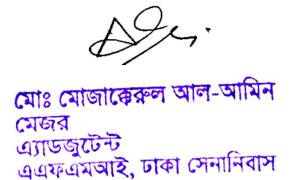 মোঃ মোজাক্কেরুল আল-আমিন
মেজর
এ্যাডজুটেন্ট
এএফএমআই, ঢাকা সেনানিবাস